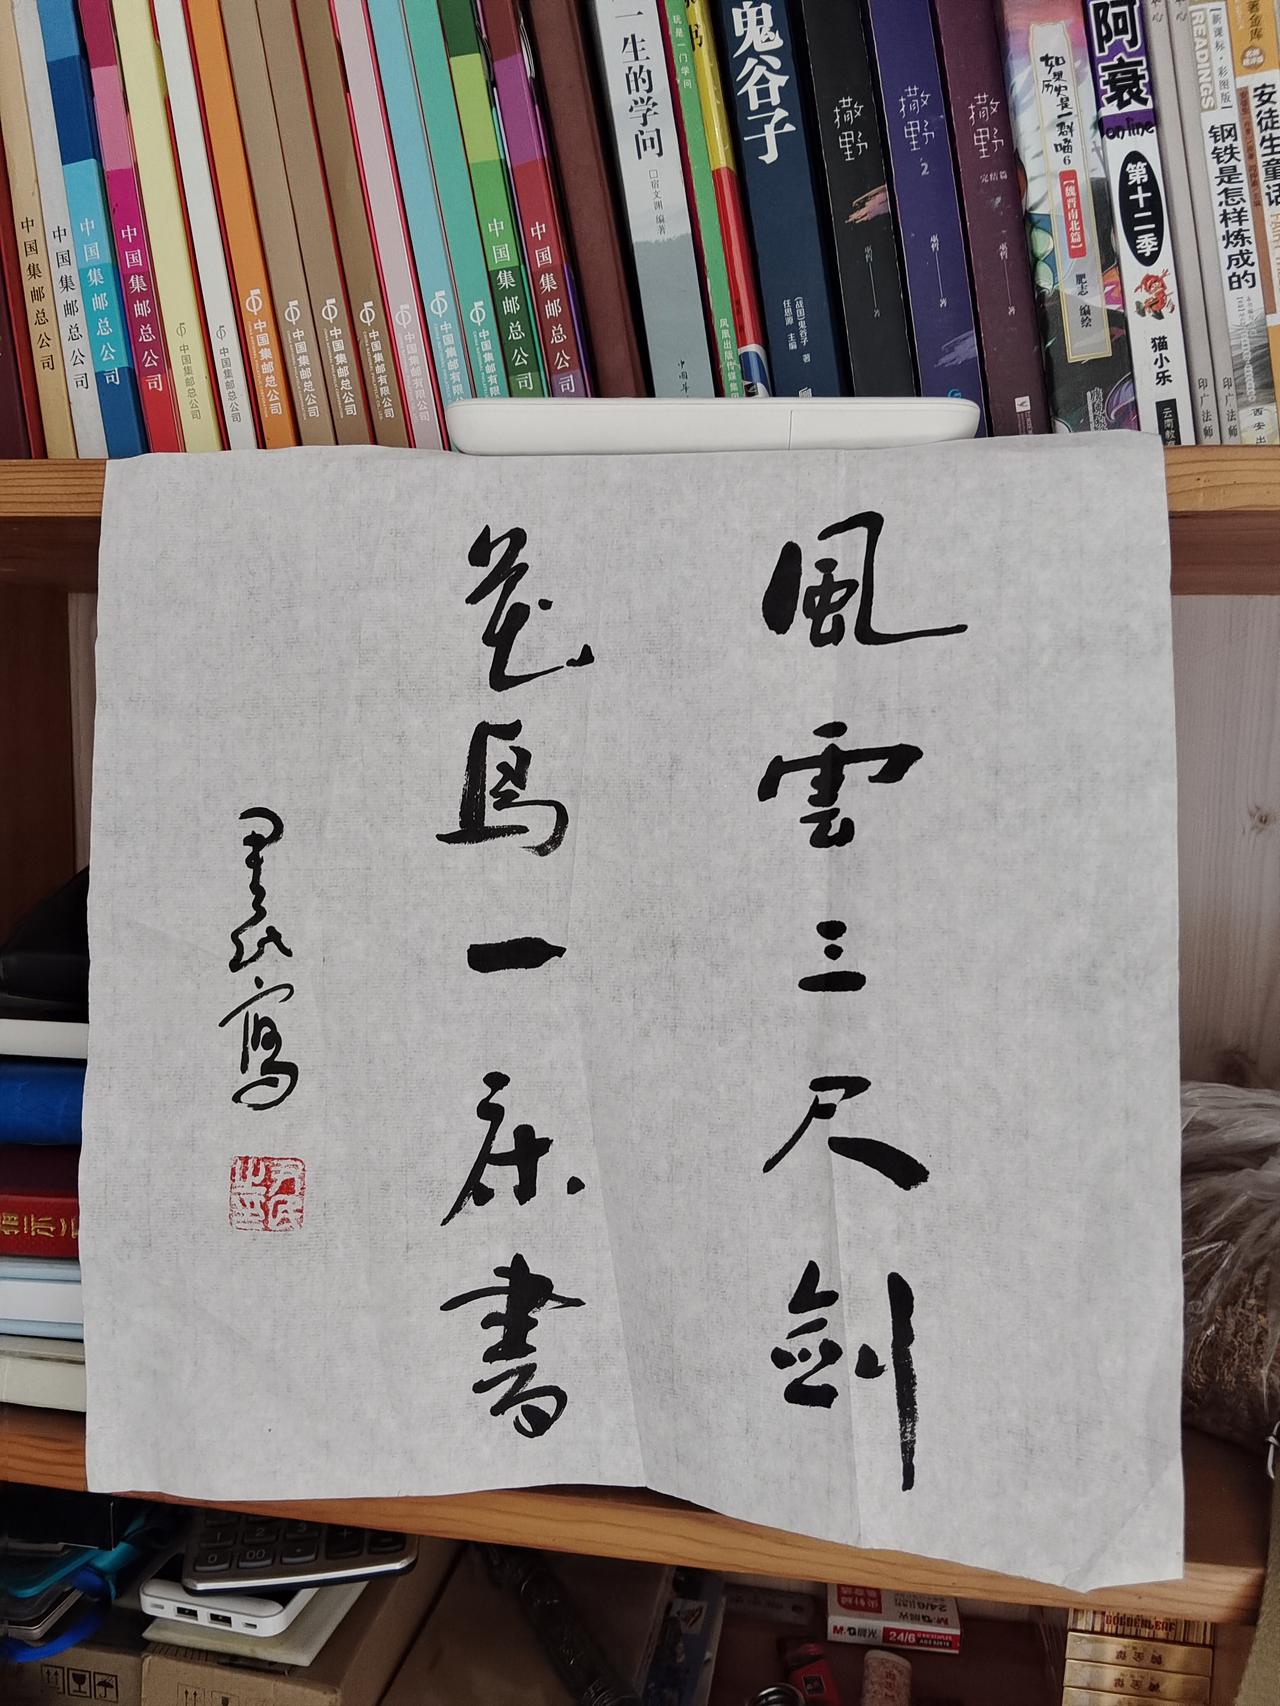 風雲三尺劍
花鳥一床書
寫
中国集邮总公司
中国集邮总公司
中国集邮总公司
中国集邮总公司
中国集邮总公司
中国集邮总公司
中国集邮总公司
中国集邮总公司
中国集邮总公司
中国集邮总公司
中国集邮有限公司
中国集邮有限公司
中国集邮有限公司
中国集邮总公司
中国集邮总公司
一生的学问
□宿文渊 编著
玩是一门学问
凤凰出版传媒集团
鬼谷子
(战国)鬼谷子 著
任思源 主编
撒野
巫哲 著
撒野 2
巫哲 著
撒野 完结篇
巫哲 著
如果历史是一群喵6
【魏晋南北篇】
肥志 编绘
阿衰 online
第十二季
猫小乐
印广法师
印广法师
新课标·彩图版
READINGS
钢铁是怎样炼成的
安徒生童话
M&G 晨光
24/6